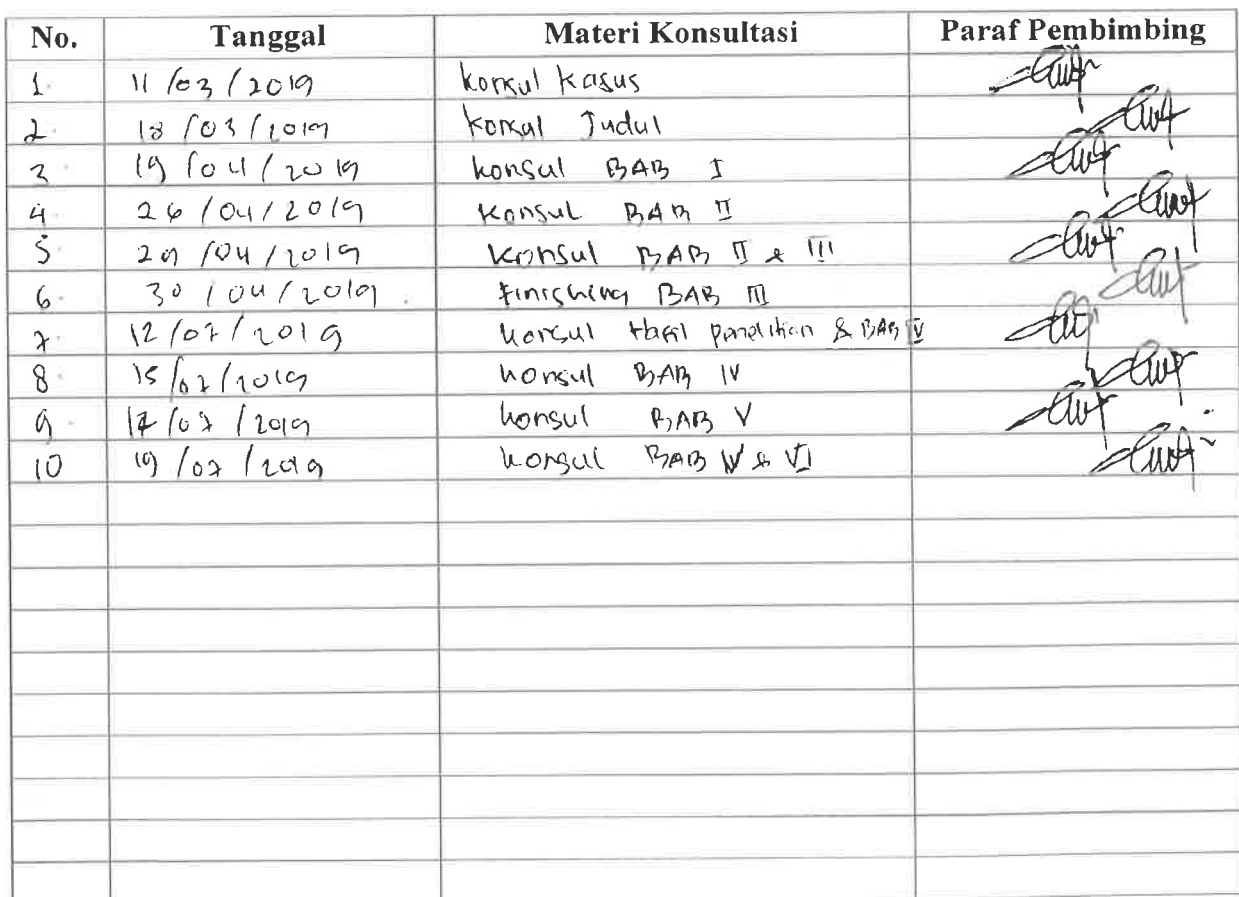 No. Tanggal Materi Konsultasi Paraf Pembimbing
1. 11/03/2019 Konsul Kasus
2. 18/03/2019 Konsul Judul
3. 19/04/2019 Konsul BAB I
4. 26/04/2019 Konsul BAB II
5. 29/04/2019 Konsul BAB II & III
6. 30/04/2019 Finishing BAB III
7. 12/07/2019 Konsul Hasil penelitian & BAB IV
8. 15/07/2019 Konsul BAB IV
9. 17/07/2019 Konsul BAB V
10 19/07/2019 Konsul BAB IV & VI